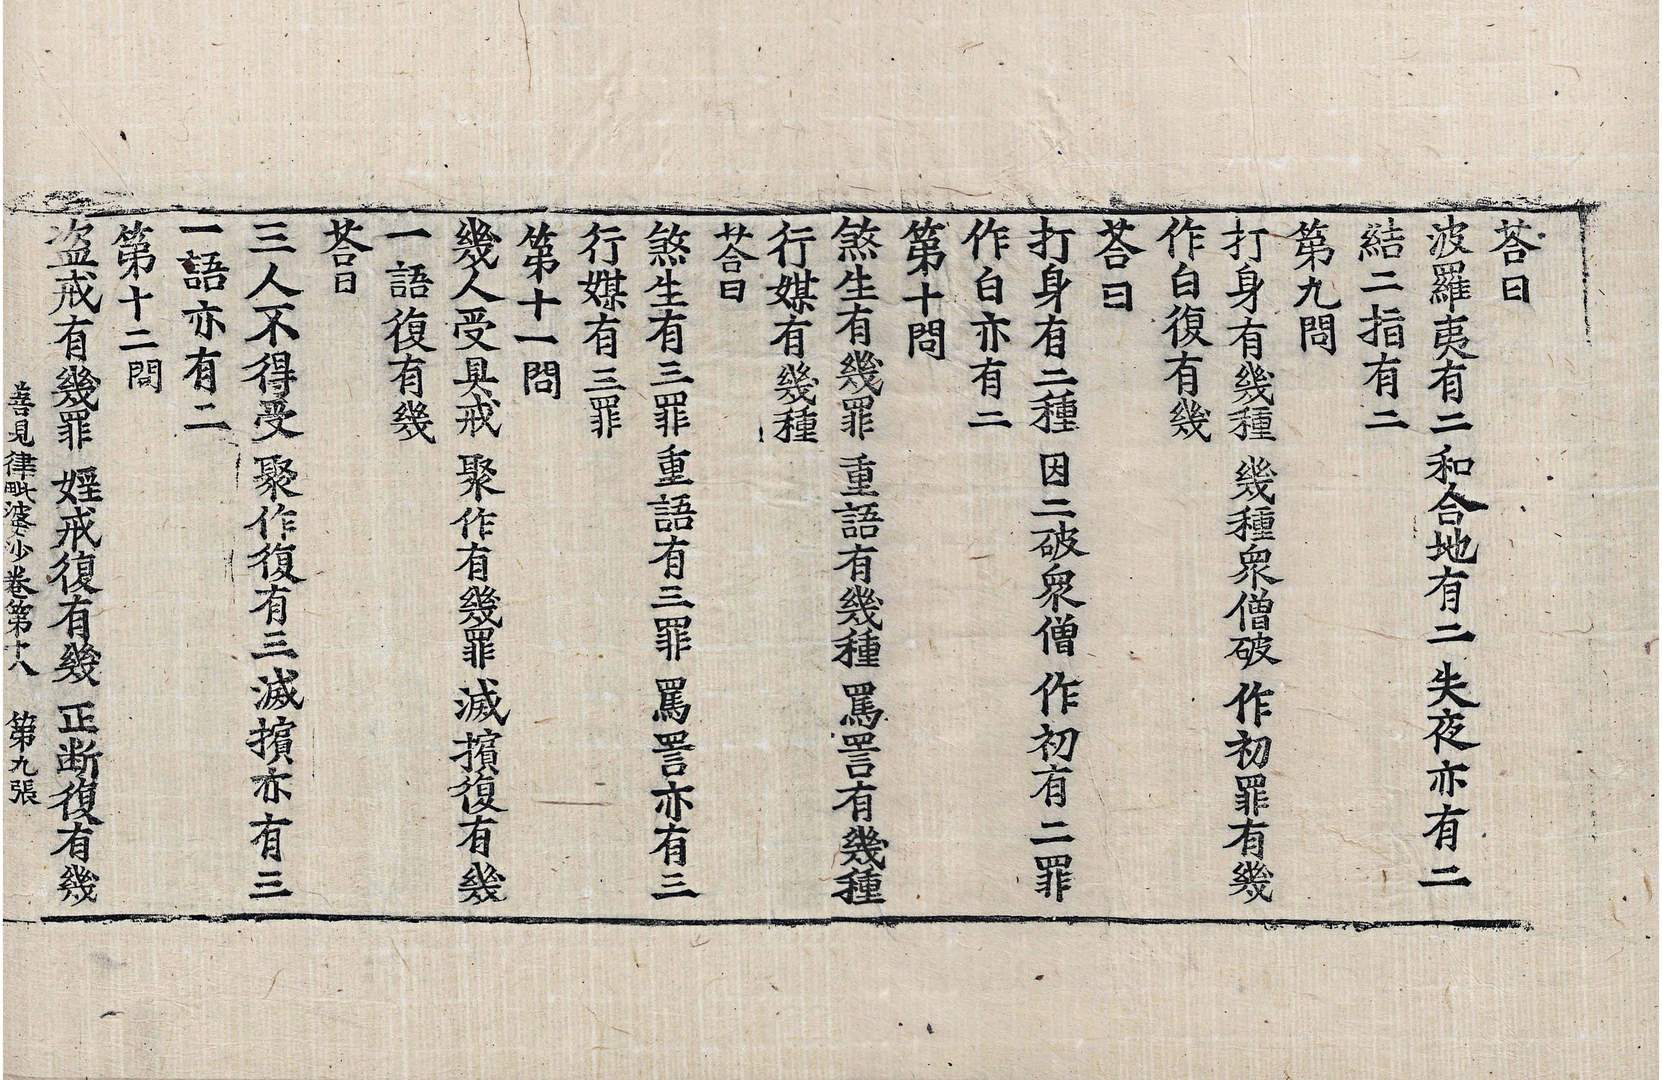 荅曰
波羅夷有二 和合地有二 失夜亦有二
結二指有二
第九問
打身有幾種 幾種衆僧破 作初罪有幾
作白復有幾
荅曰
打身有二種 因二破衆僧 作初有二罪
作白亦有二
第十問
煞生有幾罪 重語有幾種 罵詈有幾種
行媒有幾種
荅曰
煞生有三罪 重語有三罪 罵詈亦有三
行媒有三罪
第十一問
幾人受具戒 聚作有幾罪 滅擯復有幾
一語復有幾
荅曰
三人不得受 聚作復有三 滅擯亦有三
一語亦有二
第十二問
盜戒有幾罪 婬戒復有幾 正斷復有幾
善見律毗婆沙卷第十八 第九張